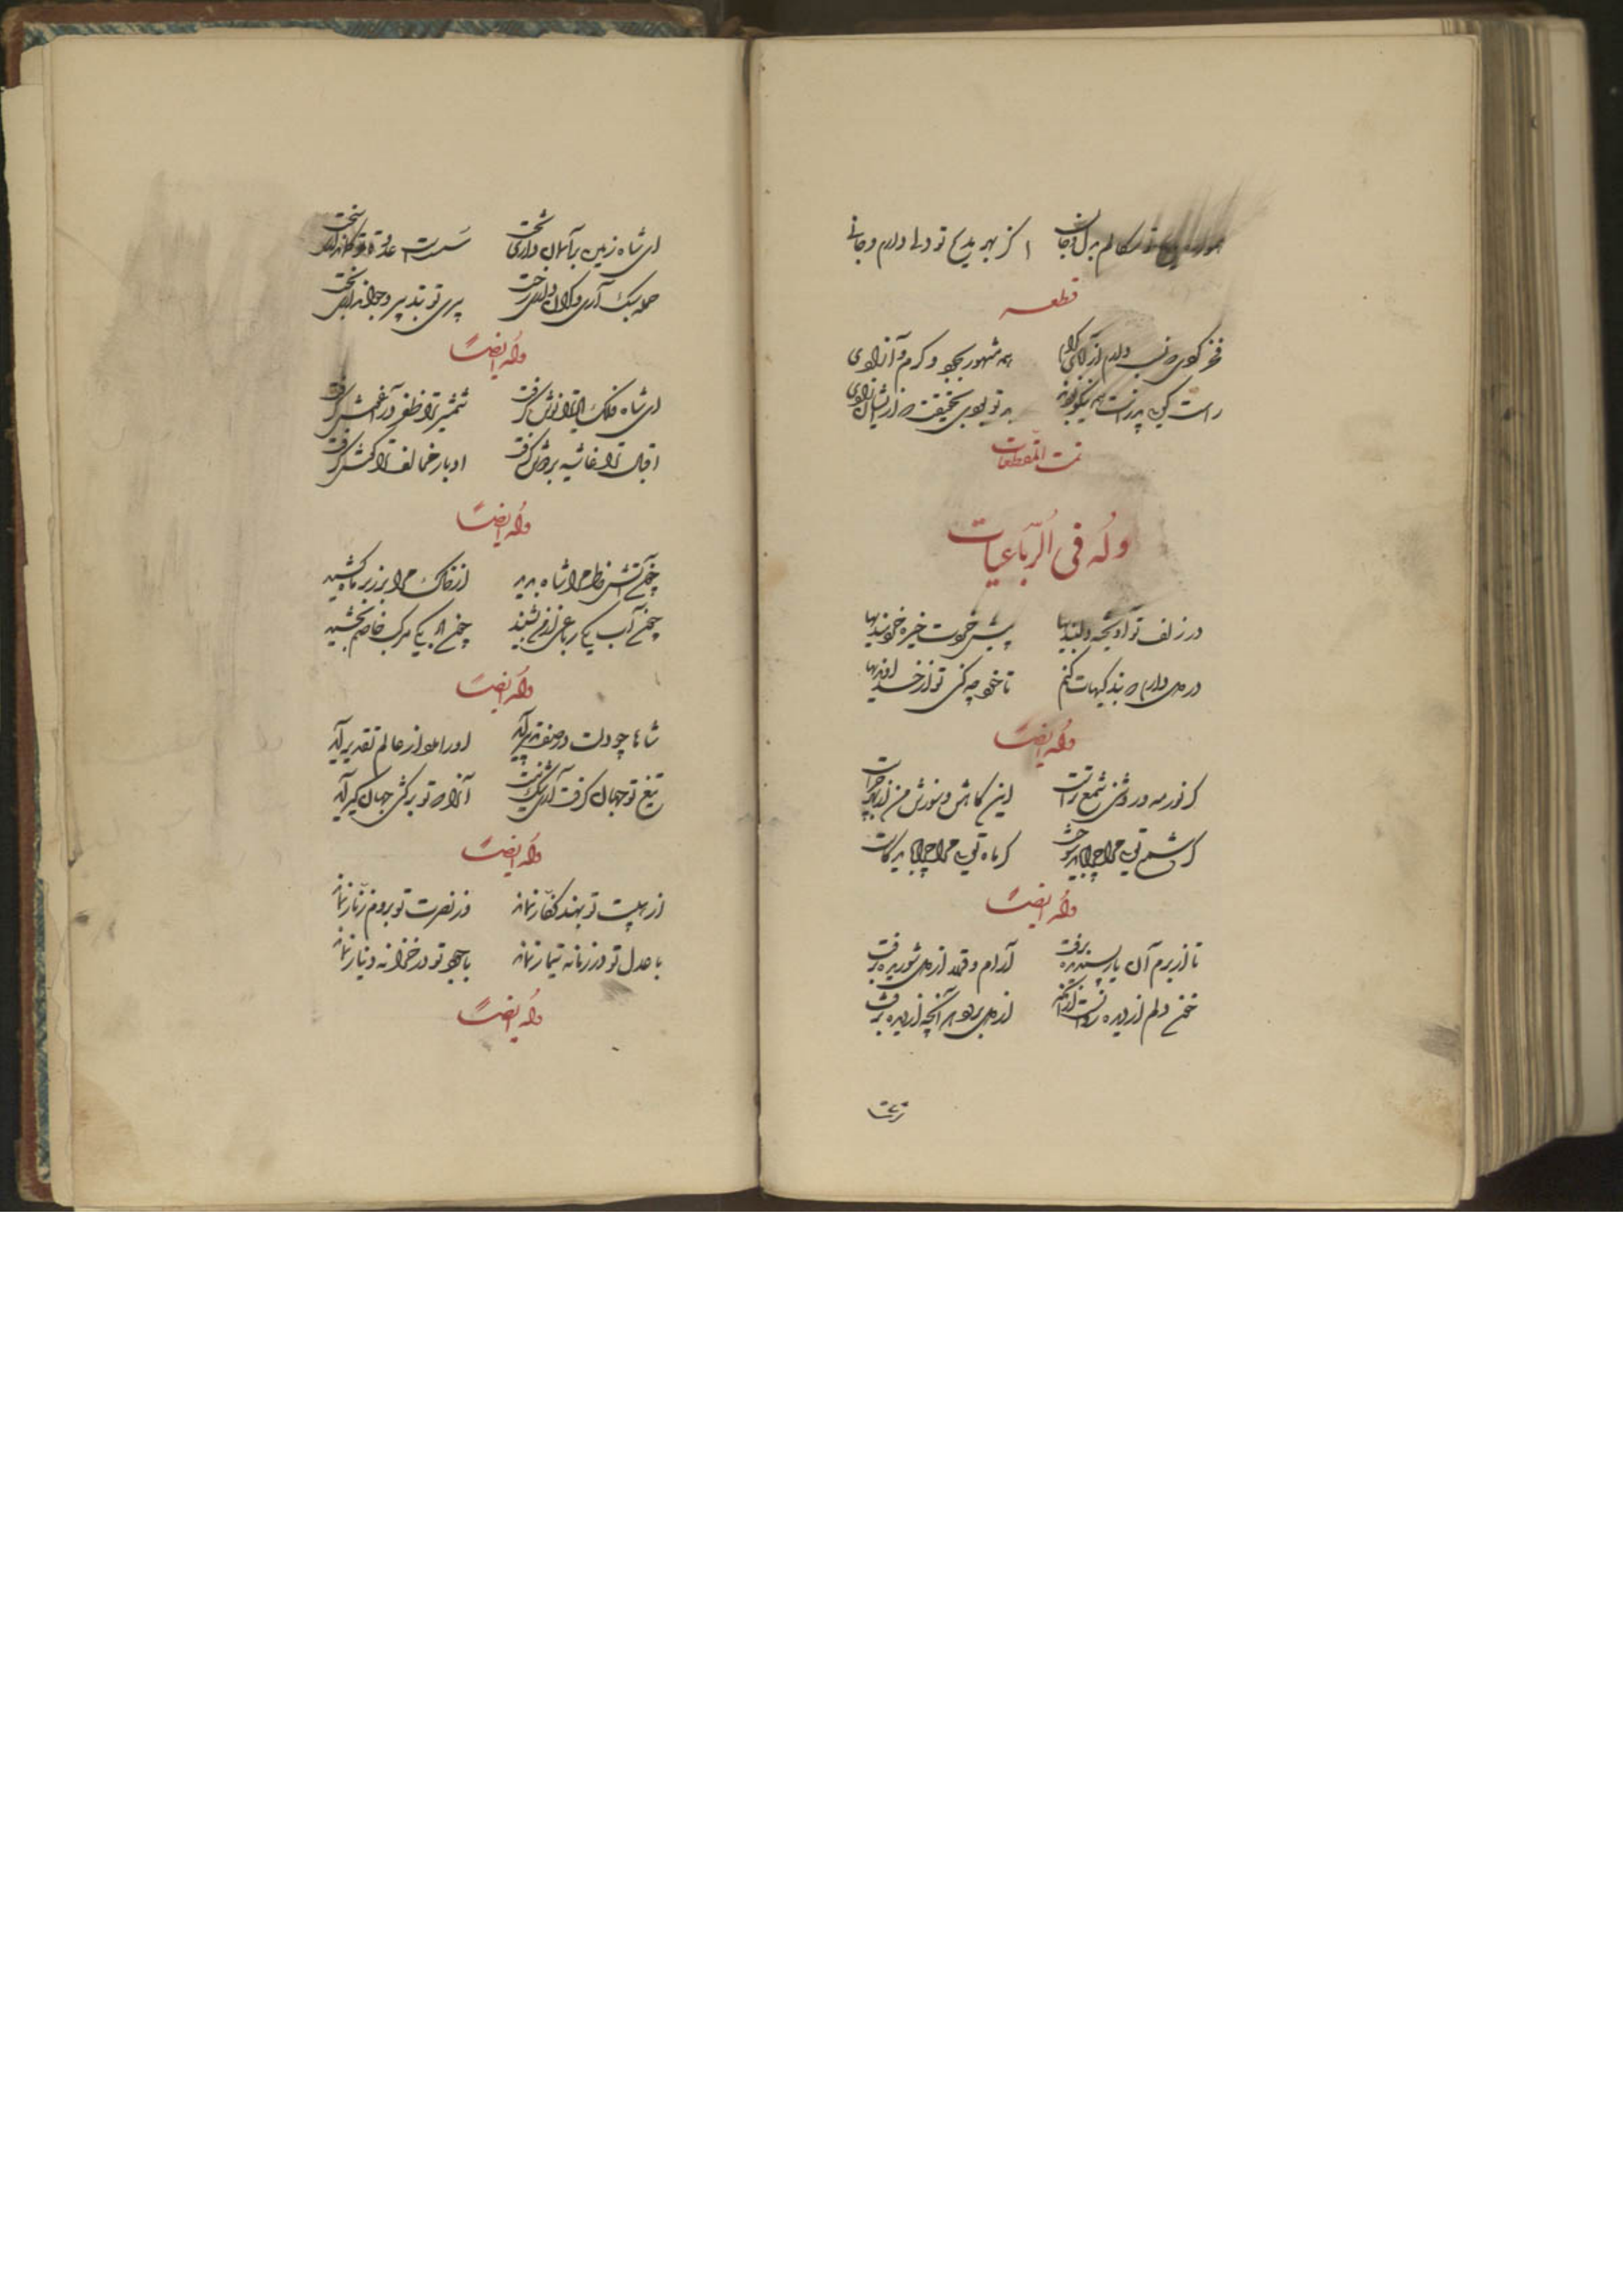 همواره مدیح تو سگالم بدل و جان
اکز بهر مدیح تو دلی دارم و جانی
قطعه
فخر کردی که نسب دارم از آبای کرام
همه مشهور بجود و کرم و آزادی
راست گویی پدرانت همه نیکو بودند
تمت المقطعات
وله فی الرباعیات
در زلف تو آویخته دلبندیها
پیش خردت خیره خردمندیها
در دل دارم که بندگیهات کنم
تا خود چه کنی تو از خداوندیها
وله ایضاً
گر نور مه و روشنی شمع تراست
این کاهش و سوزش من از بهر چراست
گر شمع تویی مرا چرا باید سوخت
گر ماه تویی مرا چرا باید کاست
وله ایضاً
تا از برم آن یار پسندیده برفت
آرام و قرار از دل شوریده برفت
خون دلم از دیده روانست از آنک
از دل برود هر آنچه از دیده برفت
ای شاه زمین بر آسمان داری تخت
سست است عدو تا تو کمان داری سخت
حمله سبک آری و گران داری رخت
پیری تو بتدبیر و جوان داری بخت
وله ایضاً
ای شاه فلک رایت
شمشیر ترا ظفر در آغوش گرفت
اقبال ترا غاشیه بر دوش گرفت
ادبار مخالف ترا گوش گرفت
وله ایضاً
چون آتش خاطر مرا شاه بدید
از خاک مرا بر زبر ماه کشید
چون آب یکی رباعی از من بشنید
چون باد یکی مرکب خاصم بخشید
وله ایضاً
شاها چو دلت در صف تدبیر آید
او را مدد از عالم تقدیر آید
تیغ تو جهان گرفت آری شک نیست
آنرا که تو برکشی جهان گیر آید
وله ایضاً
از هیبت تو بهند کفار نماند
وز نصرت تو بروم زنار نماند
با عدل تو در زمانه تیمار نماند
با جود تو در خزانه دینار نماند
وله ایضاً